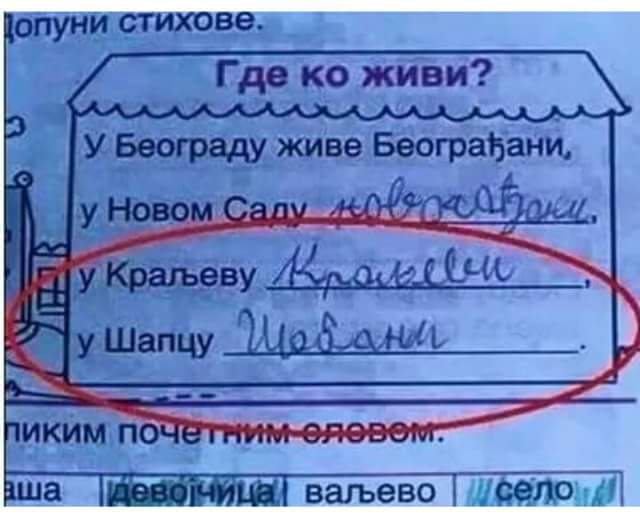 Допуни стихове.
Где ко живи?
У Београду живе Београђани,
у Новом Саду новосађани,
у Краљеву Краљеви,
у Шапцу Шабани.
ликим почетним словом.
девојчица ваљево село